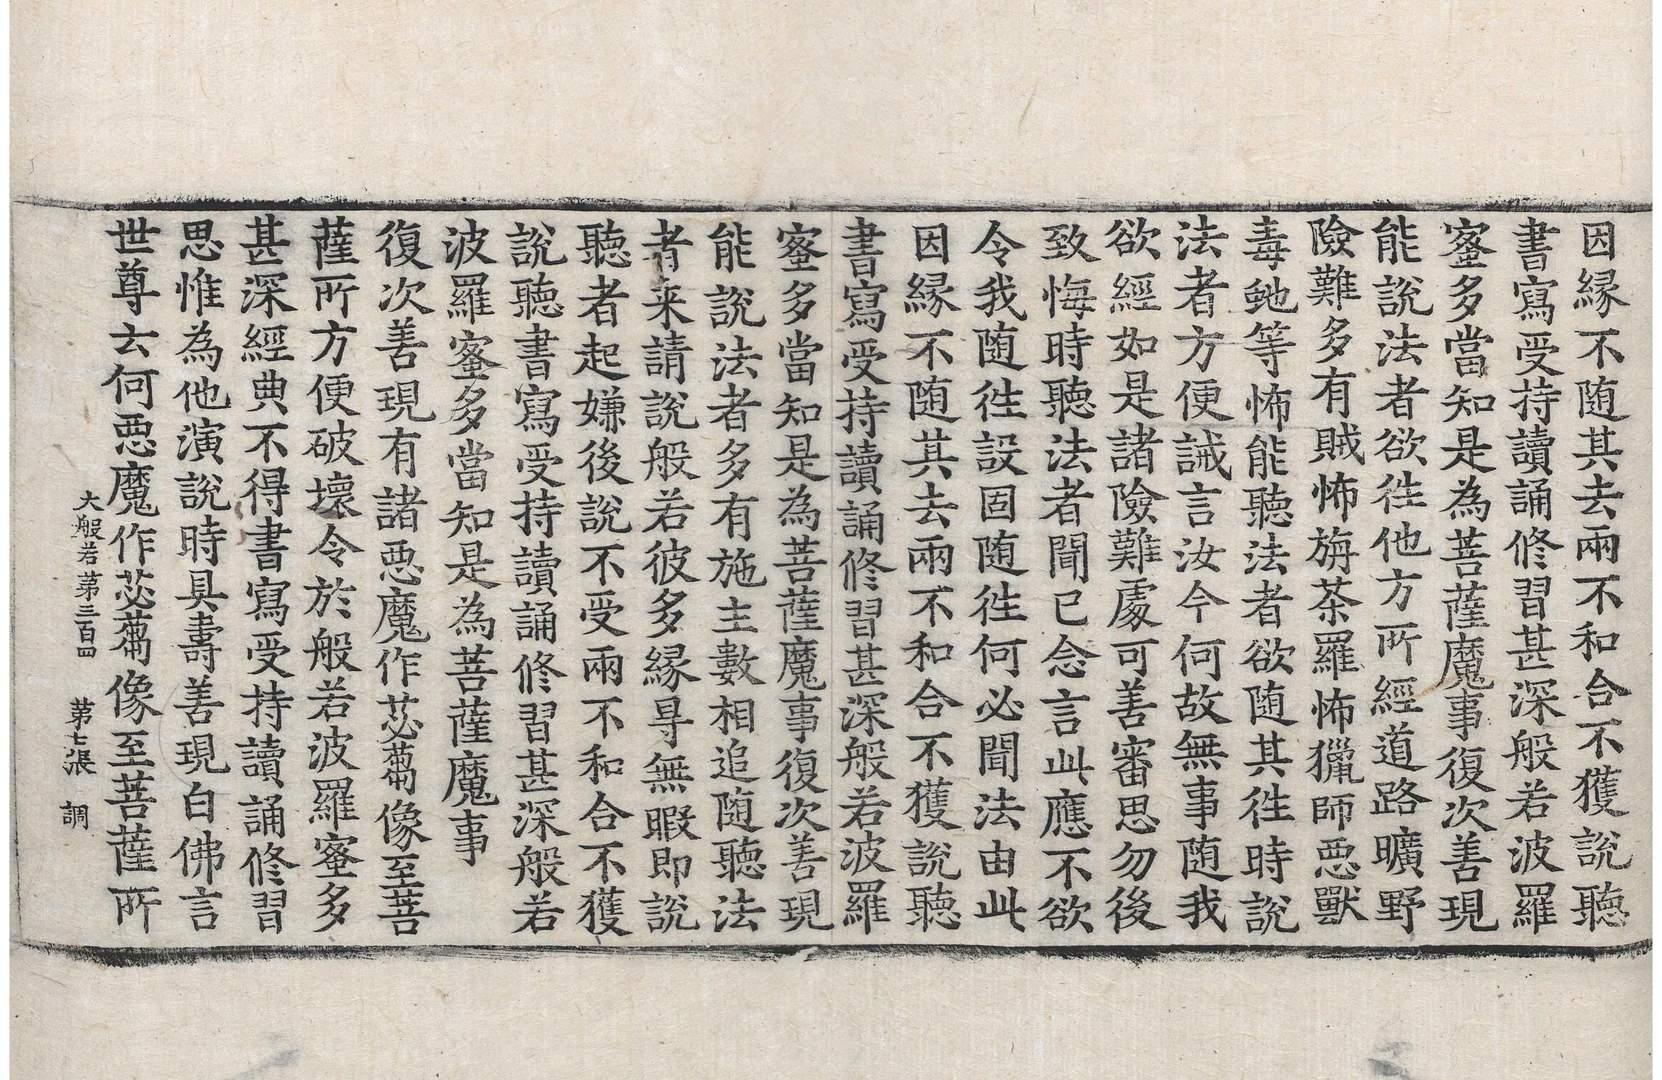 因緣不随其去兩不和合不獲說聽
書寫受持讀誦修習甚深般若波羅
蜜多當知是為菩薩魔事復次善現
能說法者欲徃他方所經道路曠野
險難多有賊怖旃茶羅怖獵師惡獸
毒虵等怖能聽法者欲随其徃時說
法者方便誡言汝今何故無事随我
欲經如是諸險難處可善審思勿後
致悔時聽法者聞已念言此應不欲
令我随徃設固随徃何必聞法由此
因緣不随其去兩不和合不獲說聽
書寫受持讀誦修習甚深般若波羅
蜜多當知是為菩薩魔事復次善現
能說法者多有施主數相追随聽法
者来請說般若彼多緣㝵無暇即說
聽者起嫌後說不受兩不和合不獲
說聽書寫受持讀誦修習甚深般若
波羅蜜多當知是為菩薩魔事
復次善現有諸惡魔作苾蒭像至菩
薩所方便破壞令於般若波羅蜜多
甚深經典不得書寫受持讀誦修習
思惟為他演說時具壽善現白佛言
世尊云何惡魔作苾蒭像至菩薩所
大般若第三百四 第七張 調